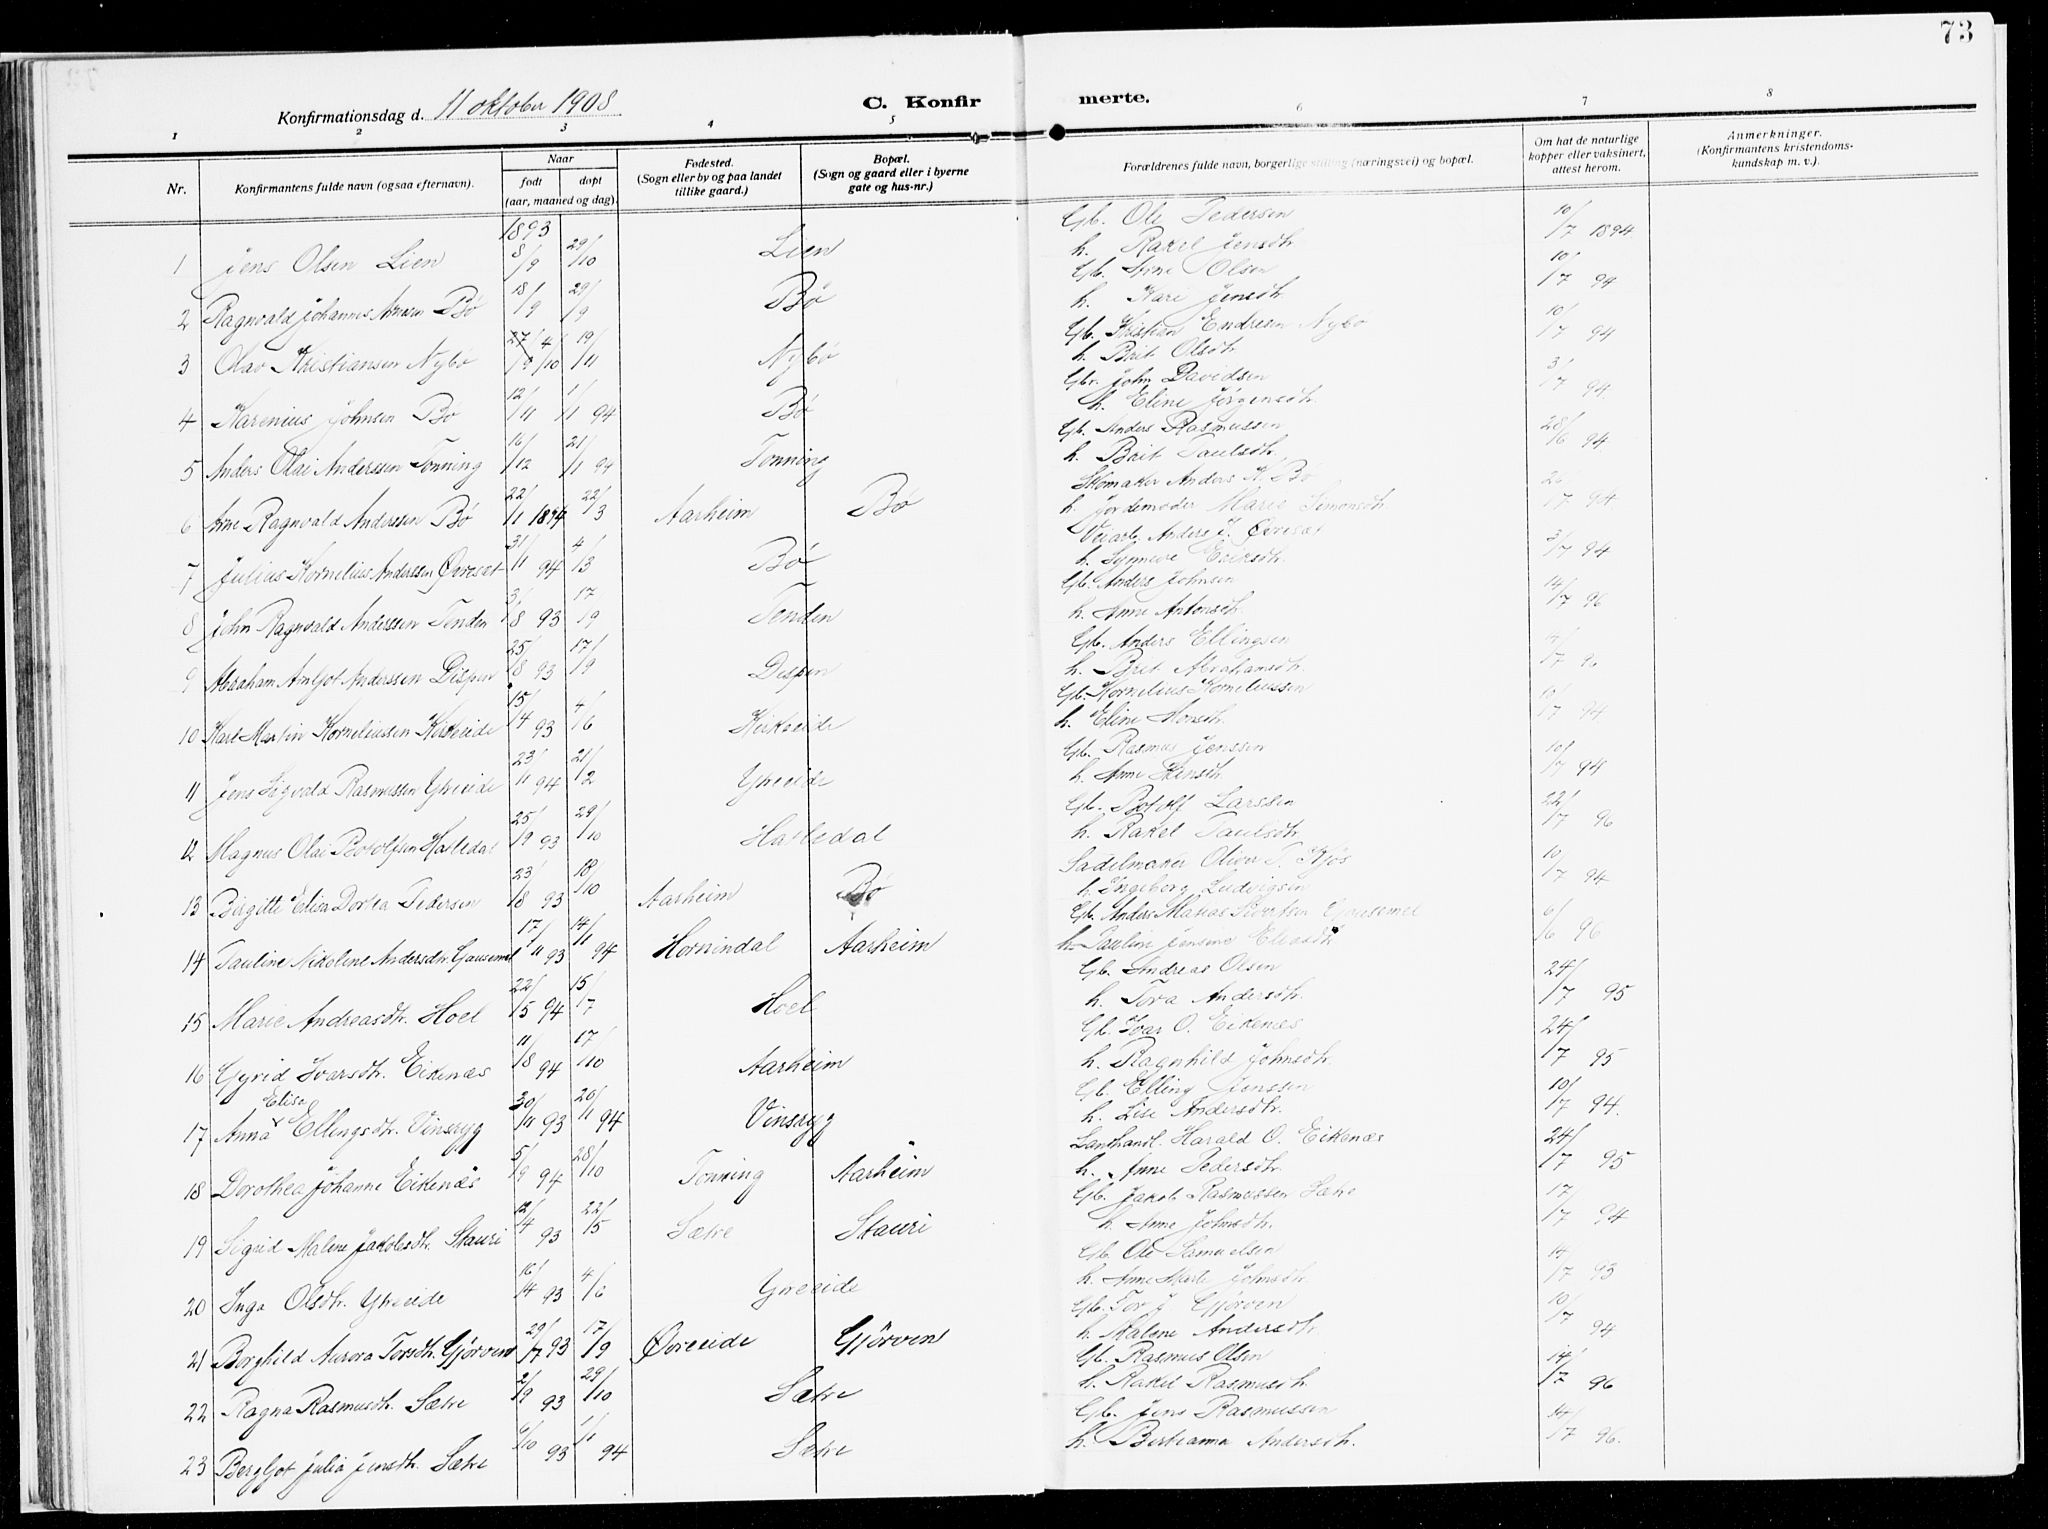 73
Konfirmationsdag d. 11 oktober 1908
C. Konfirmerte.
1 2 3 4 5 6 7 8
Nr. Konfirmantens fulde navn (ogsaa efternavn). Naar født døpt (aar, maaned og dag). Fødested. (Sogn eller by og paa landet tillike gaard.) Bopæl. (Sogn og gaard eller i byerne gate og hus-nr.) Forældrenes fulde navn, borgerlige stilling (næringsvei) og bopæl. Om hat de naturlige kopper eller vaksinert, attest herom. Anmerkninger. (Konfirmantens kristendomskundskap m. v.).
1893
1 Jens Olsen Lien 8/9 29/10 Lien Gb. Ole Pedersen 10/7 1894
h. Rakel Jensdtr.
2 Ragnvald Johannes Arnesen Bø 18/9 29/9 Bø Gb. Arne Olsen 10/7 94
h. Kari Jensdtr.
3 Olav Kristiansen Nybø 27/9 4/10 19/11 Nybø Gb. Kristian Endresen Nybø 10/7 94
h. Brit Olsdtr.
4 Karenius Johnsen Bø 12/11 1/1 94 Bø Gbr. John Davidsen 3/7 94
h. Eline Jørgensdtr.
5 Anders Olai Anderssen Tonning 16/12 21/1 94 Tonning Gb. Anders Rasmussen 28/6 94
h. Brit Paulsdtr.
6 Arne Ragnvald Anderssen Bø 22/1 1894 22/3 Aarheim Bø Skomaker Anders K. Bø 26/7 94
h. Jordemoder Marie Simonsdtr.
7 Julius Kornelius Anderssen Øvresæt 31/1 94 4/3 Bø Veiarb. Anders J. Øvresæt 3/7 94
h. Synneve Eriksdtr.
8 John Ragnvald Anderssen Tenden 31/8 93 17/9 Tenden Gb. Anders Johnsen 14/7 96
h. Anne Antonsdtr.
9 Abraham Arnljot Anderssen Dispen 25/8 93 17/9 Dispen Gb. Anders Ellingsen 14/7 96
h. Brit Abrahamsdtr.
10 Karl Martin Korneliussen Kirkeide 15/4 93 4/6 Kirkeide Gb. Kornelius Korneliussen 10/7 94
h. Eline Monsdtr.
11 Jens Sigvald Rasmussen Ytreeide 23/1 94 21/2 Ytreeide Gb. Rasmus Jenssen 10/7 94
h. Anne
12 Magnus Olai Botolfsen Hatledal 25/9 93 29/10 Hatledal Gb. Botolf Larssen 22/7 96
h. Rakel Paulsdtr.
13 Birgitte Elisa Dortea Pedersen 23/8 93 18/10 Aarheim Bø Sadelmaker Oliver P. Kjøs 10/7 94
h. Ingeborg Ludvigsen
14 Pauline Nikoline Andersdtr. Gausemel 17/11 93 14/1 94 Hornindal Aarheim Gb. Anders Matias Sivertsen Gausemel 6/6 96
h. Paulin Jensine Eliasdtr.
15 Marie Andreasdtr. Hoel 22/5 94 15/7 Hoel Gb. Andreas Olsen 24/7 95
h. Tora Andersdtr.
16 Gyrid Ivarsdtr. Eikenæs 11/8 94 17/10 Aarheim Gb. Ivar O. Eikenæs 24/7 95
h. Ragnhild Johnsdtr.
17 Anna Elisa Ellingsdtr. Vinsryg 30/11 93 20/1 94 Vinsryg Gb. Elling Jenssen 10/7 94.
h. Lise Andersdtr.
18 Dorothea Johanne Eikenæs 5/9 94 28/10 Tonning Aarheim Lanhandl. Harald O. Eikenæs 24/7 95
h. Anne Pedersdtr.
19 Sigrid Malene Jakobsdtr. Stauri 12/4 93 22/5 Sætre Stauri Gb. Jakob Rasmussen Sætre 17/7 94
h. Anne Johnsdtr.
20 Inga Olsdtr. Ytreeide 16/4 93 4/6 Ytreeide Gb. Ole Samuelsen 14/7 93
h. Anne Marte Johnsdtr.
21 Borghild Aurora Torsdtr. Gjørven 29/7 93 17/9 Øvreeide Gjørven Gb. Tor J. Gjørven 10/7 94
h. Malene Andersdtr.
22 Ragna Rasmusdtr. Sætre 2/9 93 29/10 Sætre Gb. Rasmus Olsen 14/7 96
h. Rakel Rasmusdtr.
23 Bergljot Julia Jensdtr. Sætre 6/10 93 1/1 94 Sætre Gb. Jens Rasmussen 14/7 96.
h. Bertianna Andersdtr.